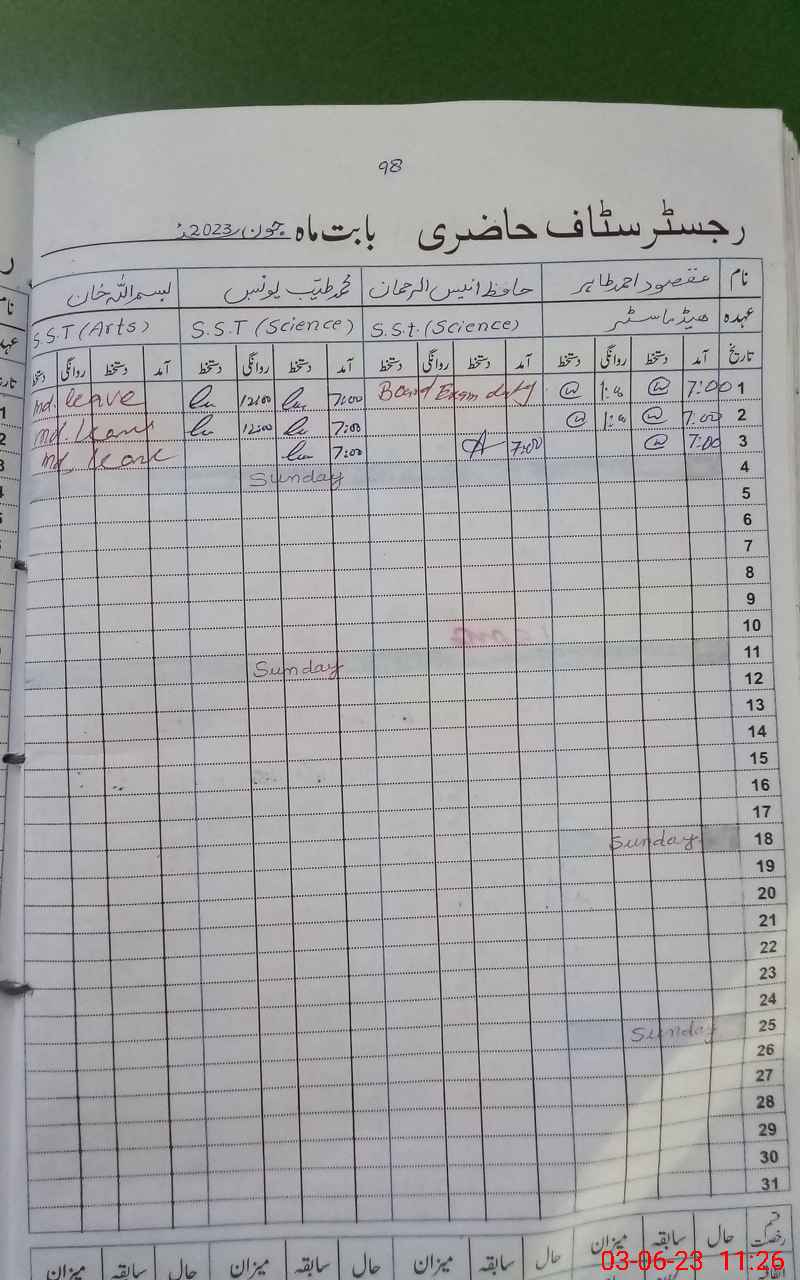 98
رجسٹر سٹاف حاضری بابت ماہ جون 2023ء
نام مقصود احمد طاہر حافظ انیس الرحمان محمد طیب یونس بسم اللہ خان
عہدہ ھیڈ ماسٹر S.S.t.(Science) S.S.T (Science) S.S.T (Arts)
تاریخ آمد دستخط روانگی دستخط آمد دستخط روانگی دستخط آمد دستخط روانگی دستخط آمد دستخط روانگی
1 7:00 Board Exam duty 7:00 12:00 leave
2 7:00 7:00 12:00
3 7:00 7:00 7:00
4 Sunday
5
6
7
8
9
10
11 Sunday
12
13
14
15
16
17
18 Sunday
19
20
21
22
23
24
25 Sunday
26
27
28
29
30
31
قسم رخصت حال سابقہ میزان حال سابقہ میزان حال سابقہ میزان حال سابقہ میزان
03-06-23 11:26